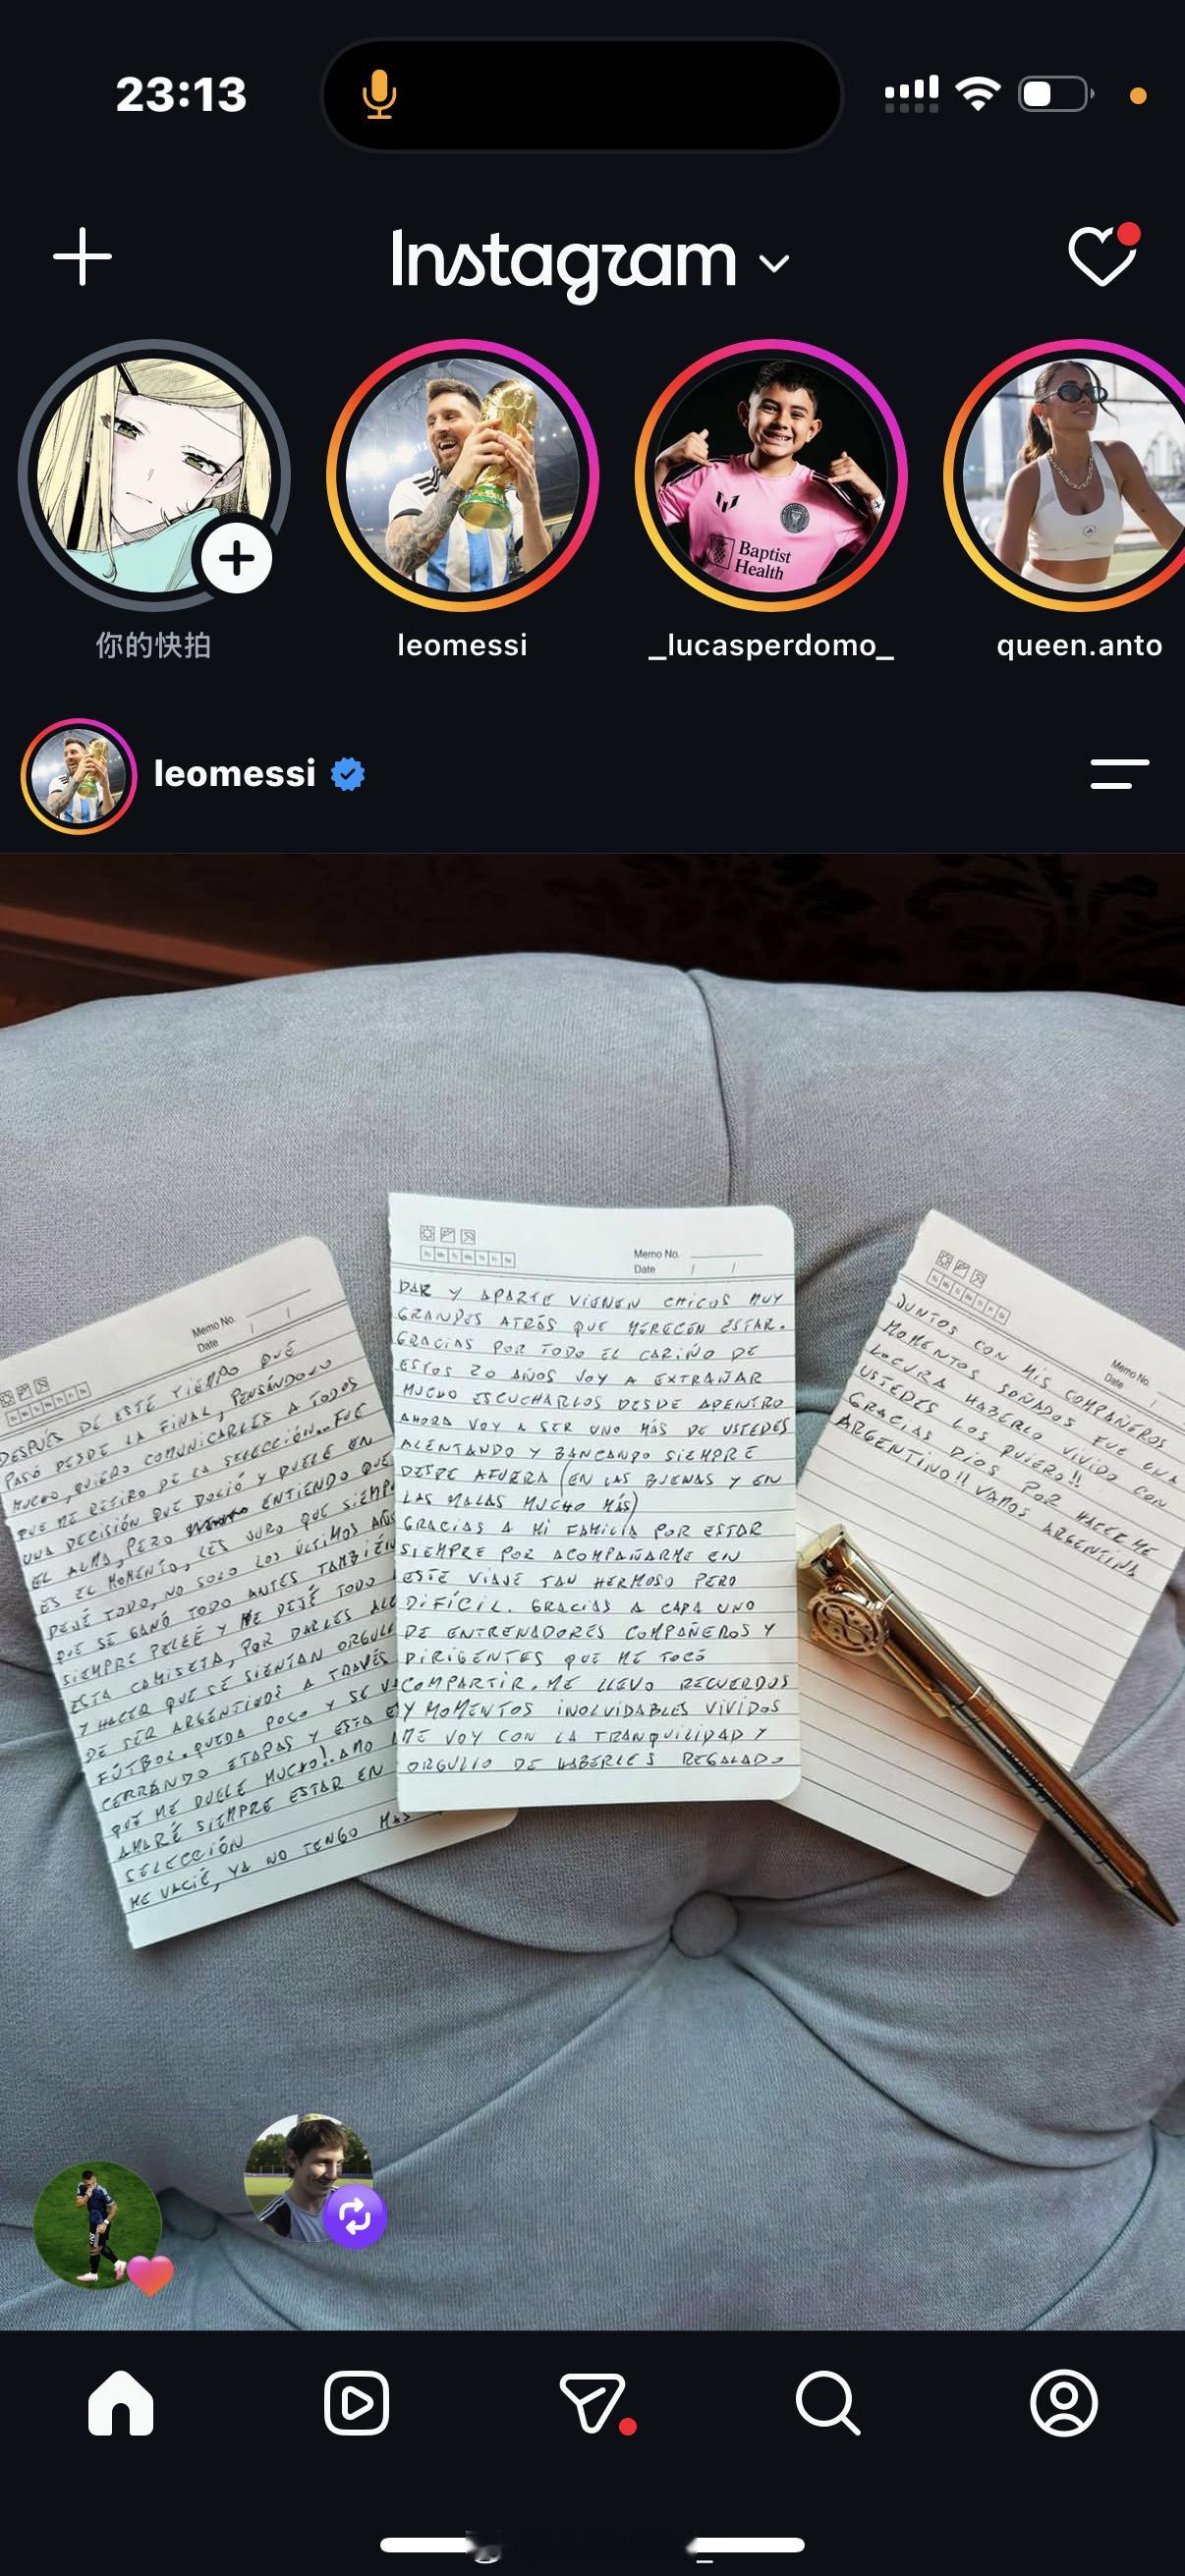 23:13
Instagram
Baptist
Health
你的快拍
leomessi
_lucasperdomo_
queen.anto
leomessi
Memo No.
Date / /
DESPUÉS DE ESTE TIEMPO QUE
PASÓ DESDE LA FINAL, PENSÁNDOLO
MUCHO, QUIERO COMUNICARLES A TODOS
QUE ME RETIRO DE LA SELECCIÓN... FUE
UNA DECISIÓN QUE DOLIÓ Y DUELE EN
EL ALMA, PERO ENTIENDO QUE
ES EL MOMENTO, LES JURO QUE SIEMP
DEJÉ TODO, NO SOLO LOS ÚLTIMOS AÑOS
QUE SE GANÓ TODO ANTES TAMBIÉN
SIEMPRE PELEÉ Y ME DEJÉ TODO
ESTA CAMISETA, POR DARLES ALE
Y HACER QUE SE SIENTAN ORGULL
DE SER ARGENTINOS A TRAVÉS
FÚTBOL. QUEDA POCO Y SE V
CERRANDO ETAPAS Y ESTA E
QUE ME DUELE MUCHO! AMO
AMARÉ SIEMPRE ESTAR EN
SELECCIÓN
ME VACIÉ, YA NO TENGO MAS
Memo No.
Date / /
DAR Y APARTE VIENEN CHICOS MUY
GRANDES ATRÁS QUE MERECEN ESTAR.
GRACIAS POR TODO EL CARIÑO DE
ESTOS 20 AÑOS VOY A EXTRAÑAR
MUCHO ESCUCHARLOS DESDE ADENTRO
AHORA VOY A SER UNO MÁS DE USTEDES
ALENTANDO Y BANCANDO SIEMPRE
DESDE AFUERA (EN LAS BUENAS Y EN
LAS MALAS MUCHO MÁS)
GRACIAS A MI FAMILIA POR ESTAR
SIEMPRE POR ACOMPAÑARME EN
ESTE VIAJE TAN HERMOSO PERO
DIFÍCIL. GRACIAS A CADA UNO
DE ENTRENADORES COMPAÑEROS Y
DIRIGENTES QUE ME TOCÓ
COMPARTIR. ME LLEVO RECUERDOS
Y MOMENTOS INOLVIDABLES VIVIDOS
ME VOY CON LA TRANQUILIDAD Y
ORGULLO DE HABERLES REGALADO
Memo No.
Date /
JUNTOS CON MIS COMPAÑEROS
MOMENTOS SOÑADOS FUE UNA
LOCURA HABERLO VIVIDO CON
USTEDES LOS QUIERO!!
GRACIAS DIOS POR HACERME
ARGENTINO!! VAMOS ARGENTINA